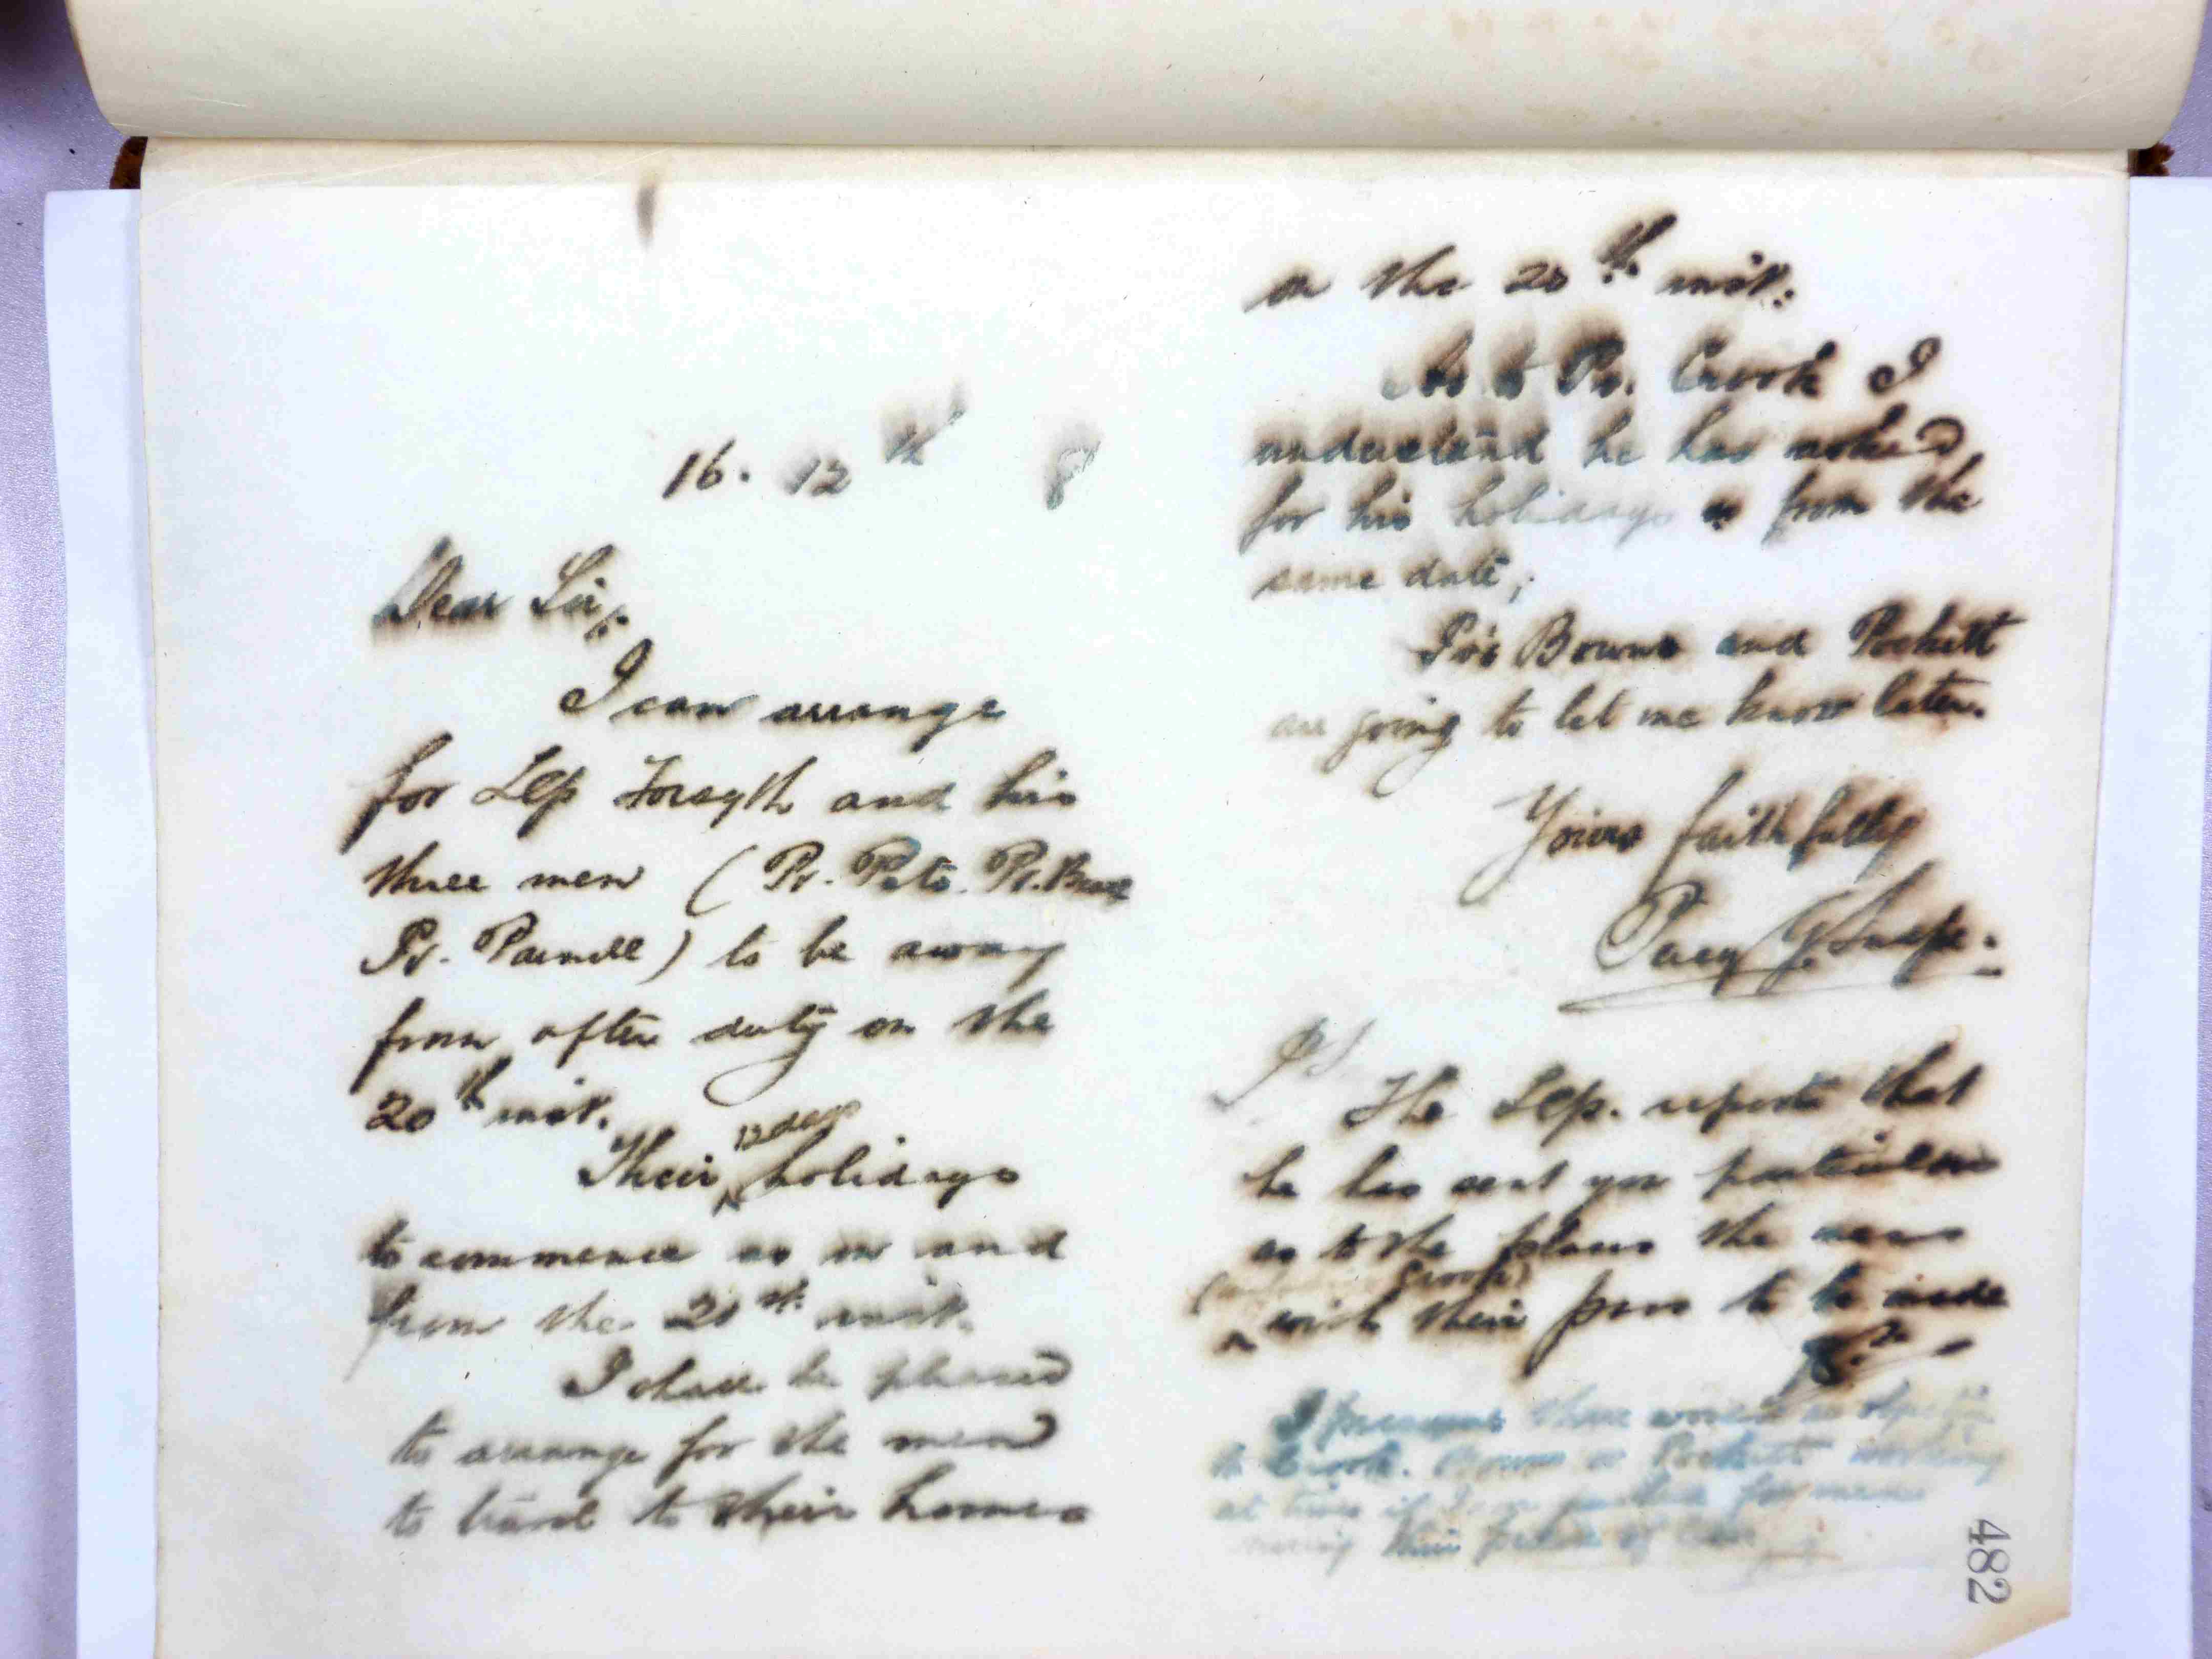 16. 12th 8
Dear Sir,
I can arrange
for Lcp Forsyth and his
three men (Pr. Pr.
Pr. Parnell) to be away
from after duty on the
20th inst.
Their 12 days holidays
to commence as on and
from the 21st inst.
I shall be pleased
to arrange for the men
to travel to their homes
on the 20th inst.
As to Pr. Crook I
understand he has asked
for his holidays as from the
same date;
Prs Browne and Pockett
are going to let me know later.
Yours faithfully
Percy
PS
The Lcp. reports that
he has sent you particulars
as to the places the men
(Crook)
wish their pass to be made
I presume there would
to Crook. or Pockett working
at
their of
482